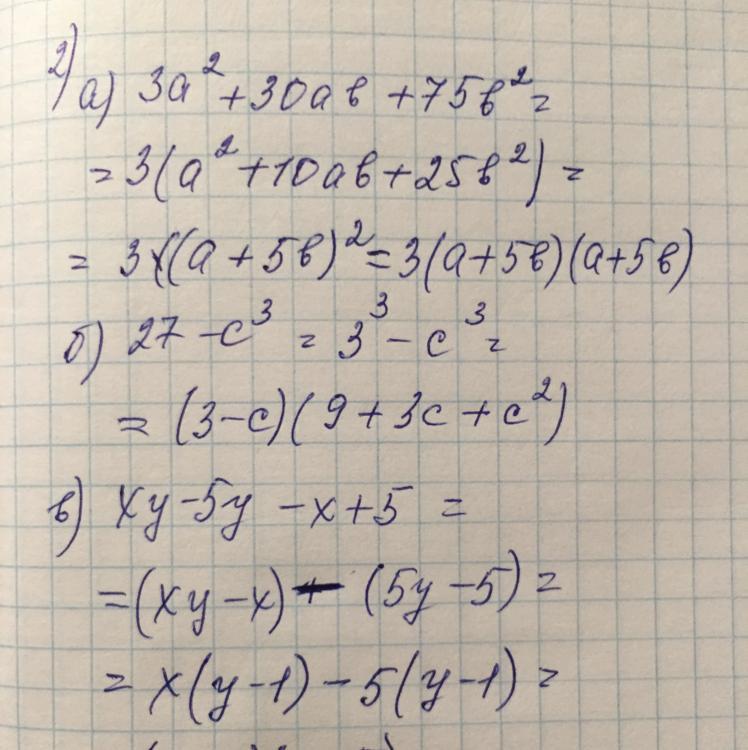 2) а) 3a² + 30ab + 75b² =
= 3(a² + 10ab + 25b²) =
= 3((a + 5b)² = 3(a + 5b)(a + 5b)
б) 27 - c³ = 3³ - c³ =
= (3 - c)(9 + 3c + c²)
в) xy - 5y - x + 5 =
= (xy - x) - (5y - 5) =
= x(y - 1) - 5(y - 1) =